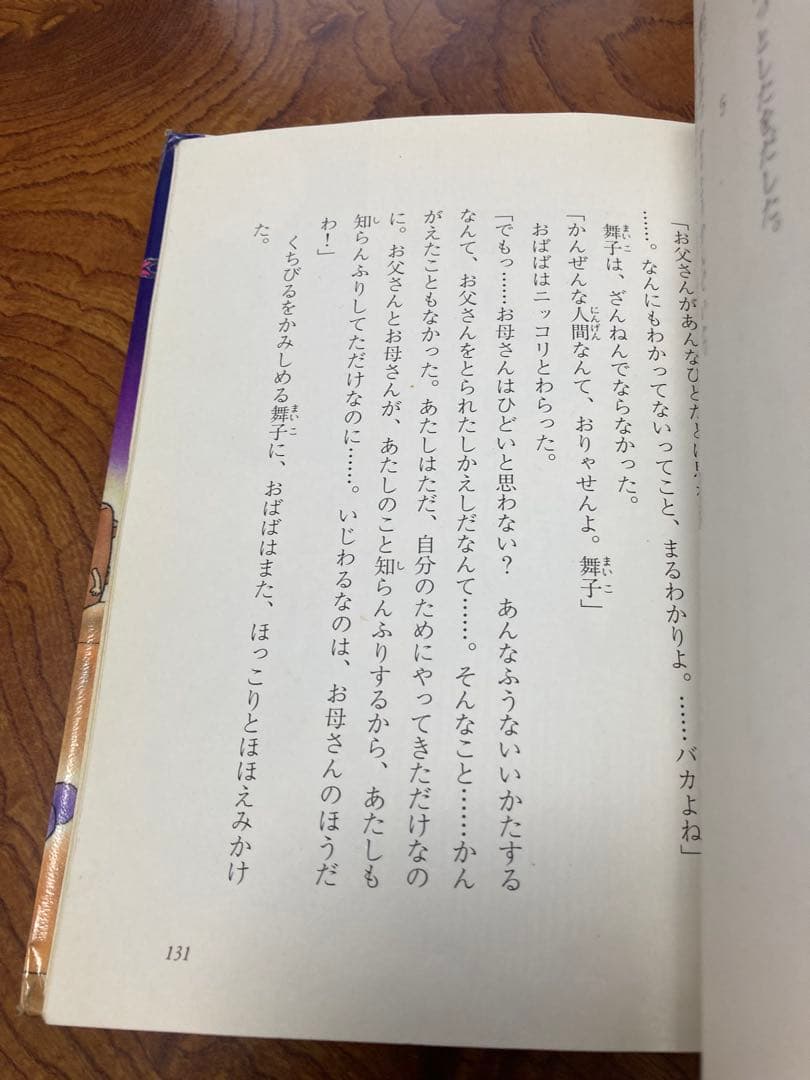 「お父さんがあんなひとだとは思
……。なんにもわかってないってこと、まるわかりよ。……バカよね」
舞子は、ざんねんでならなかった。
「かんぜんな人間なんて、おりゃせんよ。舞子」
おばばはニッコリとわらった。
「でもっ……お母さんはひどいと思わない？　あんなふうないいかたする
なんて、お父さんをとられたしかえしだなんて……。そんなこと……かん
がえたこともなかった。あたしはただ、自分のためにやってきただけなの
に。お父さんとお母さんが、あたしのこと知らんふりするから、あたしも
知らんふりしてただけなのに……。いじわるなのは、お母さんのほうだ
わ！」
くちびるをかみしめる舞子に、おばばはまた、ほっこりとほほえみかけ
た。
131